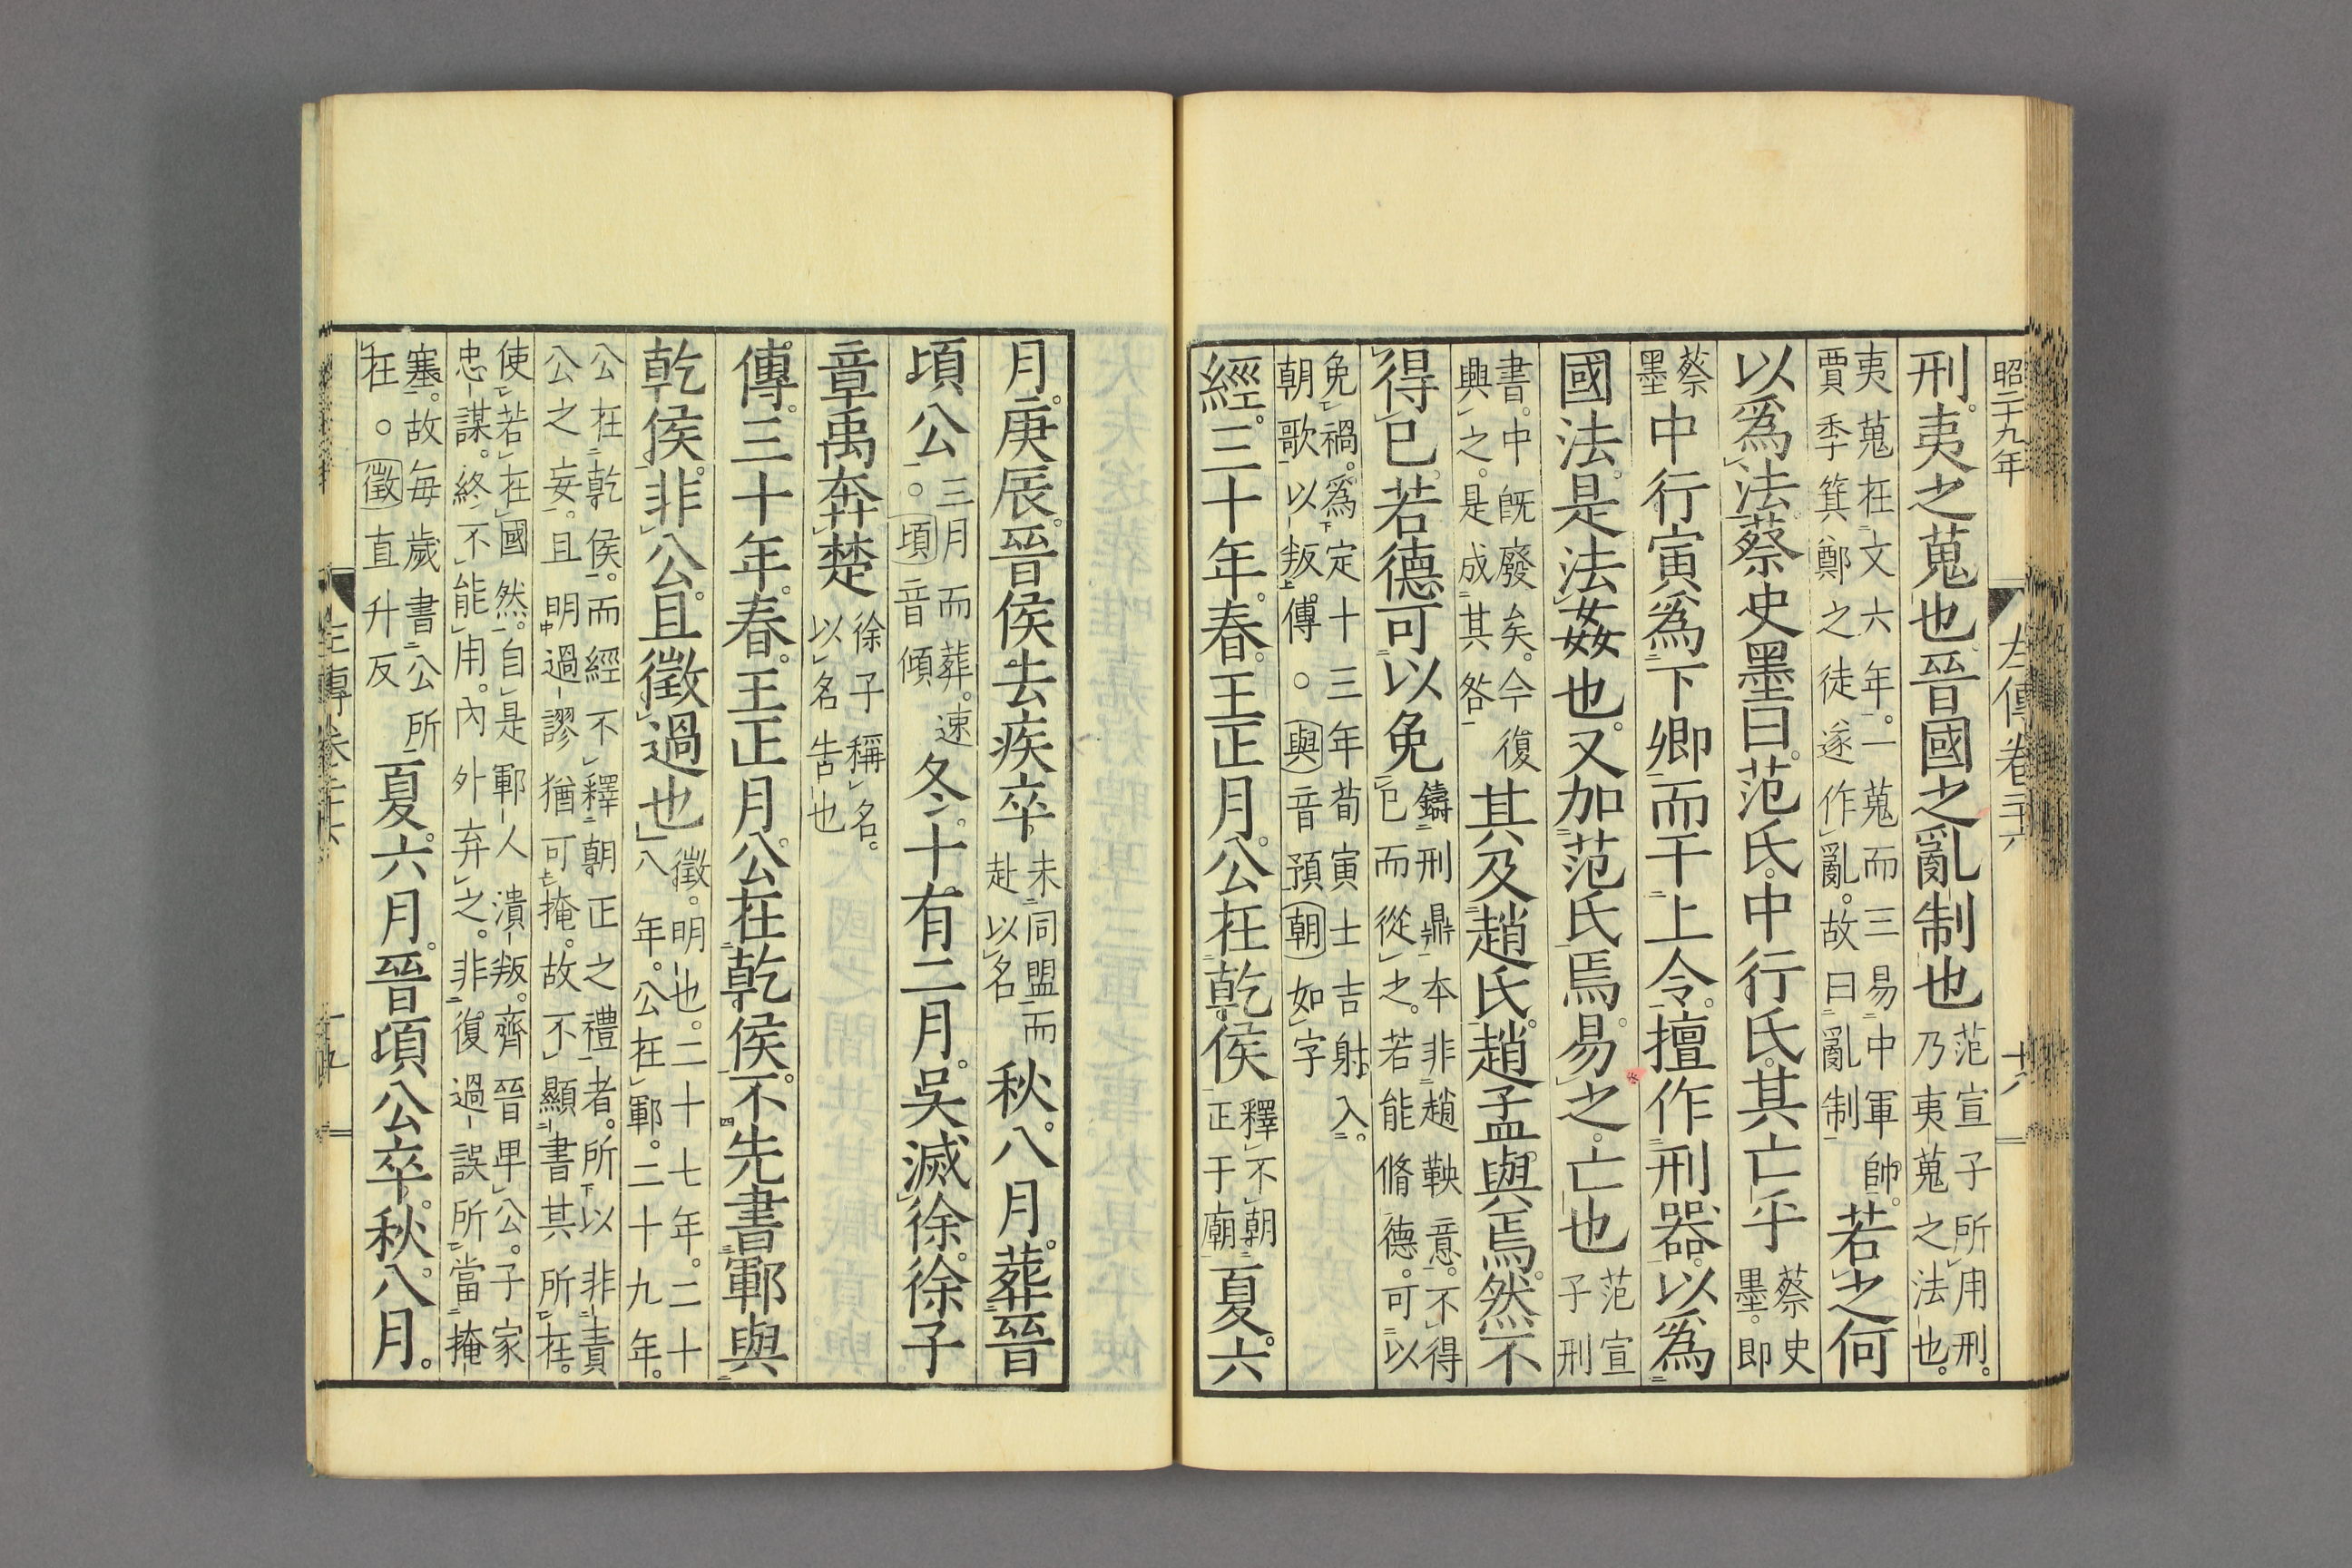 昭二十九年 左傳卷二十六 十八
刑。夷之蒐也。晉國之亂制也范宣子所用刑。乃夷蒐之法也。
夷蒐在文六年。一蒐而三易中軍帥。賈季箕鄭之徒遂作亂。故曰亂制若之何
以爲法。蔡史墨曰。范氏。中行氏。其亡乎蔡史墨。即
蔡墨中行寅爲下卿。而干上令。擅作刑器。以爲
國法。是法姦也。又加范氏焉。易之。亡也范宣子刑
書。中既廢矣。今復興之。是成其咎其及趙氏。趙孟與焉。然不
得已。若德可以免鑄刑鼎本非趙鞅意。不得已而從之。若能脩德。可以
免禍。爲定十三年荀寅士吉射。入朝歌以叛。傳。○與音預朝如字
經。三十年。春。王正月。公在乾侯釋不朝正于廟夏。六
月。庚辰。晉侯去疾卒。未同盟而赴以名秋。八月。葬晉
頃公。三月而葬。速。○頃音傾冬。十有二月。吳滅徐。徐子
章禹奔楚徐子稱名。以名告也
傳。三十年。春。王正月。公在乾侯。不先書鄆與
乾侯。非公。且徵過也徵。明也。二十七年。二十八年。公在鄆。二十九年。
公在乾侯。而經不釋朝正之禮者。所以非責公之妄。且明過謬猶可掩。故不顯書其所在。
使若在國然。自是鄆人潰叛。齊晉卑公。子家忠謀。終不能用。內外弃之。非復過誤所當掩
塞。故每歲書公所在。○徵直升反夏。六月。晉頃公卒。秋。八月。
左傳卷二十六 十九